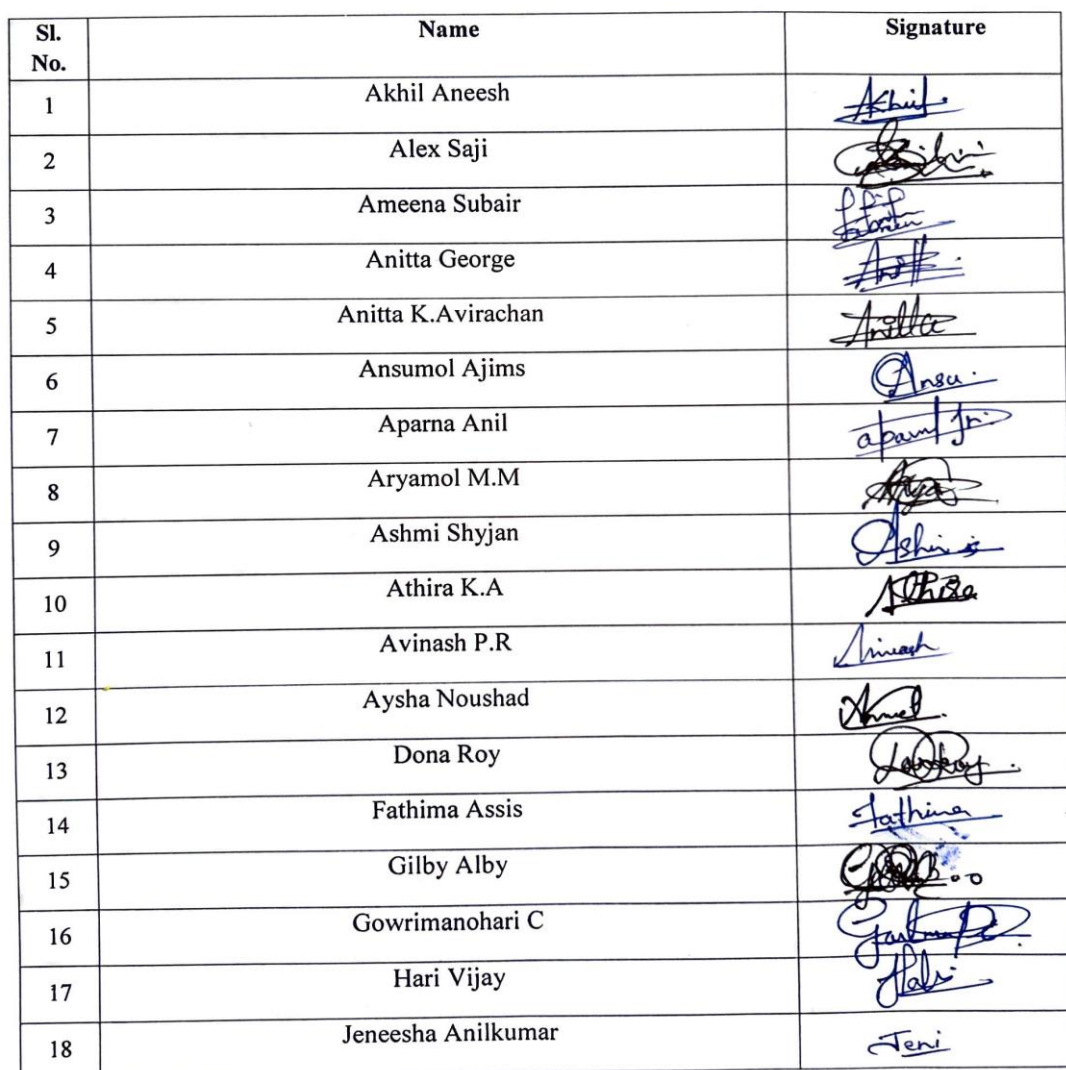 Sl. No. Name Signature
1 Akhil Aneesh Akhil
2 Alex Saji
3 Ameena Subair
4 Anitta George
5 Anitta K.Avirachan Anitta
6 Ansumol Ajims Ansu
7 Aparna Anil
8 Aryamol M.M Arya
9 Ashmi Shyjan
10 Athira K.A Athira
11 Avinash P.R Avinash
12 Aysha Noushad
13 Dona Roy
14 Fathima Assis Fathima
15 Gilby Alby
16 Gowrimanohari C
17 Hari Vijay
18 Jeneesha Anilkumar Jeni